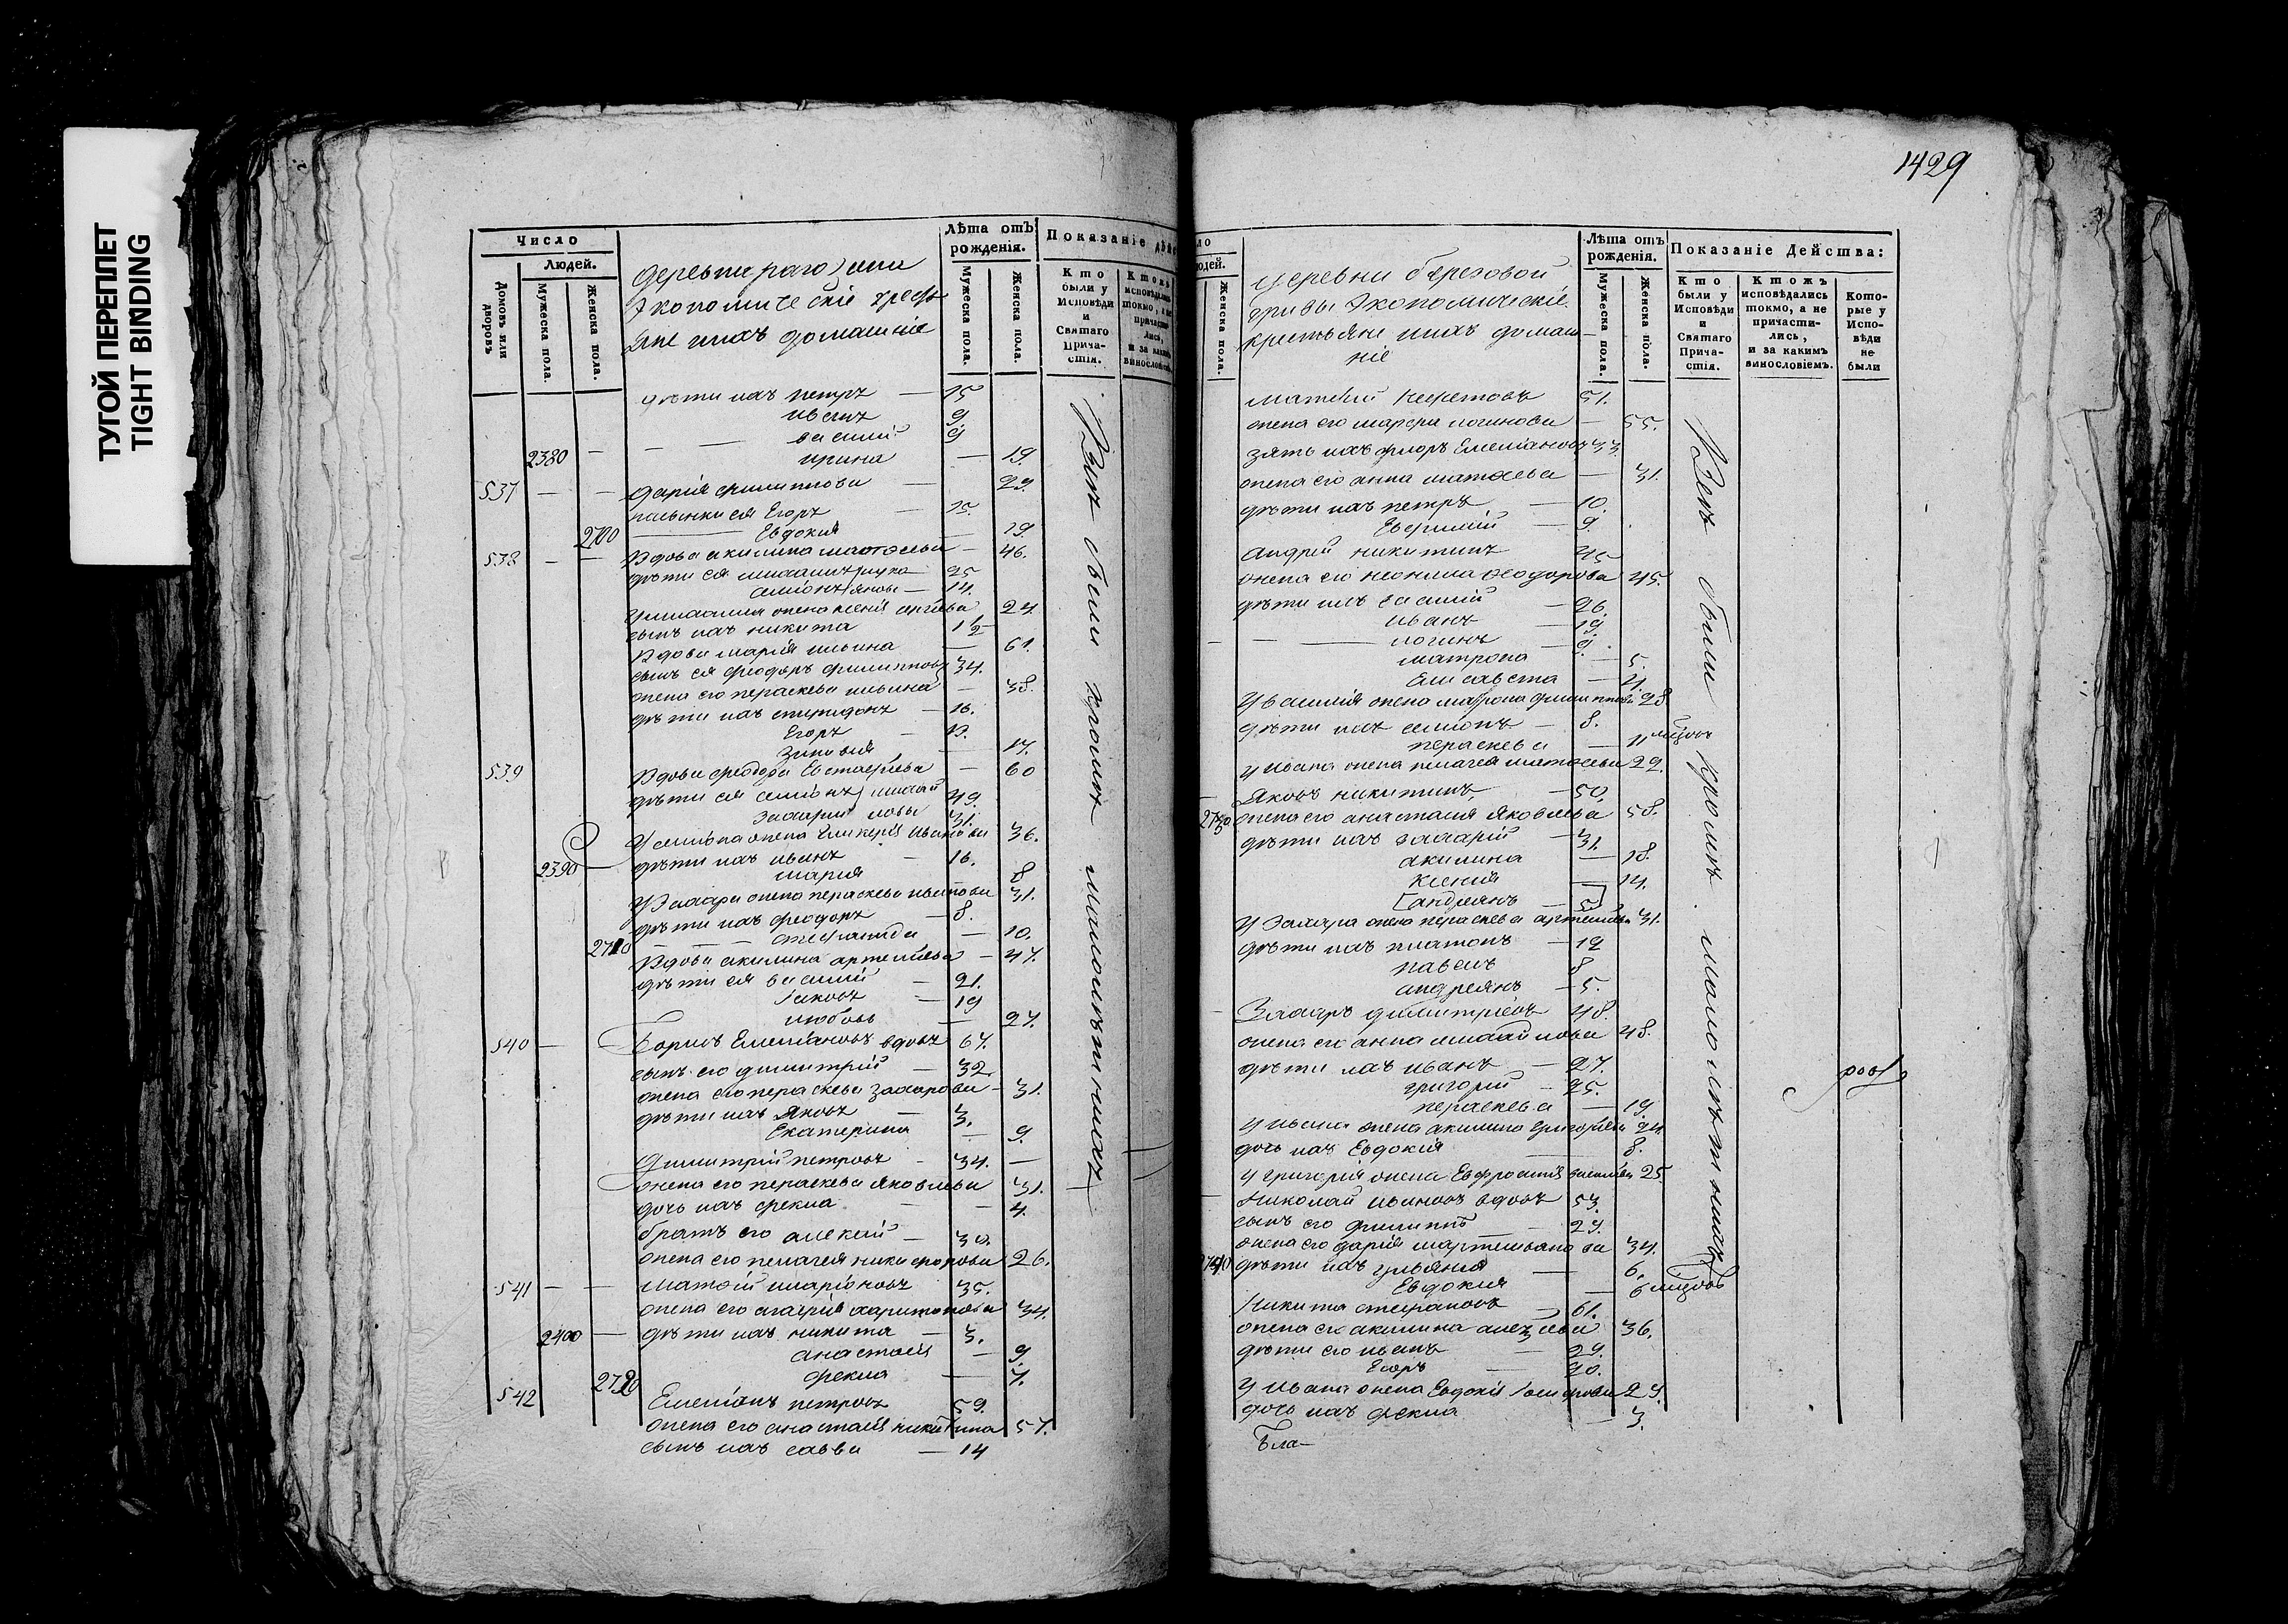 ТУГОЙ ПЕРЕПЛЕТ
TIGHT BINDING
Число
Людей.
Домовъ или дворовъ
Мужеска пола.
Женска пола.
Лѣта отъ рожденія.
Мужеска пола.
Женска пола.
Показаніе дѣ
Кто были у Исповѣди и Святаго Прича-стія.
Деревни
Экономическіе кресть
яне ихъ домашніе
дѣти ихъ петръ — 15
иванъ 9
василій 9
2380 — ирина — 19.
537 — — дарія филиппова — 29.
пасынки ея Егоръ — 15.
2700 Евдокия — 19.
538 — — Вдова акилина матѳеева — 46.
дѣти ея 25
14.
жена ксенія 24
сынъ ихъ никита 1½
Вдова марія ильина — 61.
сынъ ея феодоръ филипповъ 34.
жена его параскева ильина — 38.
дѣти ихъ спиридонъ — 16.
Егоръ — 12.
Зиновия — 14.
539 Вдова феодора Евстафьева — 60
дѣти ея симіонъ 49.
захарій 31.
У симіона жена гликерія иванова 36.
2390 — дѣти ихъ иванъ — 16.
марія 8
У Захара жена параскева иванова 31.
дѣти ихъ феодоръ — 8.
2710 — степанида — 10.
Вдова акилина артемьева — 47.
дѣти ея василій — 21.
Іаковъ — 19
любовь — 27.
540 — Борисъ Емеліановъ вдовъ 67.
сынъ его димитрій — 32
жена его параскева захарова — 31.
дѣти ихъ Яковъ — 3.
Екатерина — 9.
Димитрій петровъ — 34. —
жена его параскева Яковлева 31.
дочь ихъ фекла — — 4.
братъ его алексій — 30.
жена его пелагея никифорова 26.
541 — — матѳій иларіоновъ 35.
жена его харитонова 34.
2400 — дѣти ихъ никита — 3.
анастасія — 9.
2720 фекла — 7.
542 Емеліанъ петровъ 59.
жена его анастасія никитина 57.
сынъ ихъ савва — 14
Всѣ были кромѣ малолѣтнихъ
1429
Женска пола.
Лѣта отъ рожденія.
Мужеска пола.
Женска пола.
Показаніе Действа:
Кто были у Исповѣди и Святаго Прича-стія.
Ктожъ исповѣдались токмо, а не причасти-лись, и за какимъ винословіемъ.
Кото-рые у Испо-вѣди не были
Деревни березовой
гривы Экономическіе
крестьяне ихъ домаш
ніе
матѳий 51.
жена его марфа логинова — 55.
зять ихъ флоръ Емеліановъ 33.
жена его анна матѳеева — 31.
дѣти ихъ петръ — 10.
Евфимій — 9.
андрей никитинъ 45
жена его неонила ѳеодорова 45.
дѣти ихъ василій — 26.
иванъ — 19.
— — логинъ — 9.
матрона — 5.
Елисавета — 4
У василія жена матрона филиппова 28
дѣти ихъ симіонъ — 8.
параскева — 11 мѣсцовъ
у ивана жена пелагея матѳеева 22.
— Яковъ никитинъ — 50.
2730 жена его анастасия Яковлева 58.
дѣти ихъ захарій — 31.
акилина — 18.
Ксения — 14.
[андреянъ — 5]
У Захара жена параскева артемьева 31.
дѣти ихъ платонъ — 12
павелъ 8
андреянъ — 5.
— Захаръ димитріевъ 48.
жена его анна михайлова 48.
дѣти ихъ иванъ — 27.
григорій — 25.
параскева — 19.
у ивана жена акилина григорьева 24
дочь ихъ Евдокія — 8.
у григорія жена Евфросинія васильева 25.
— Николай ивановъ вдовъ 53.
сынъ его филиппъ — 29.
жена его дарія мартемьянова 34.
2740 дѣти ихъ ульяния — 6.
Евдокия — 6 мѣсцовъ
Никита степановъ — 61.
жена его акилина 36.
дѣти его иванъ — 29.
Егоръ — 20.
У ивана жена Евдокія 29.
дочь ихъ фекла — 3.
Всѣ были кромѣ малолѣтнихъ